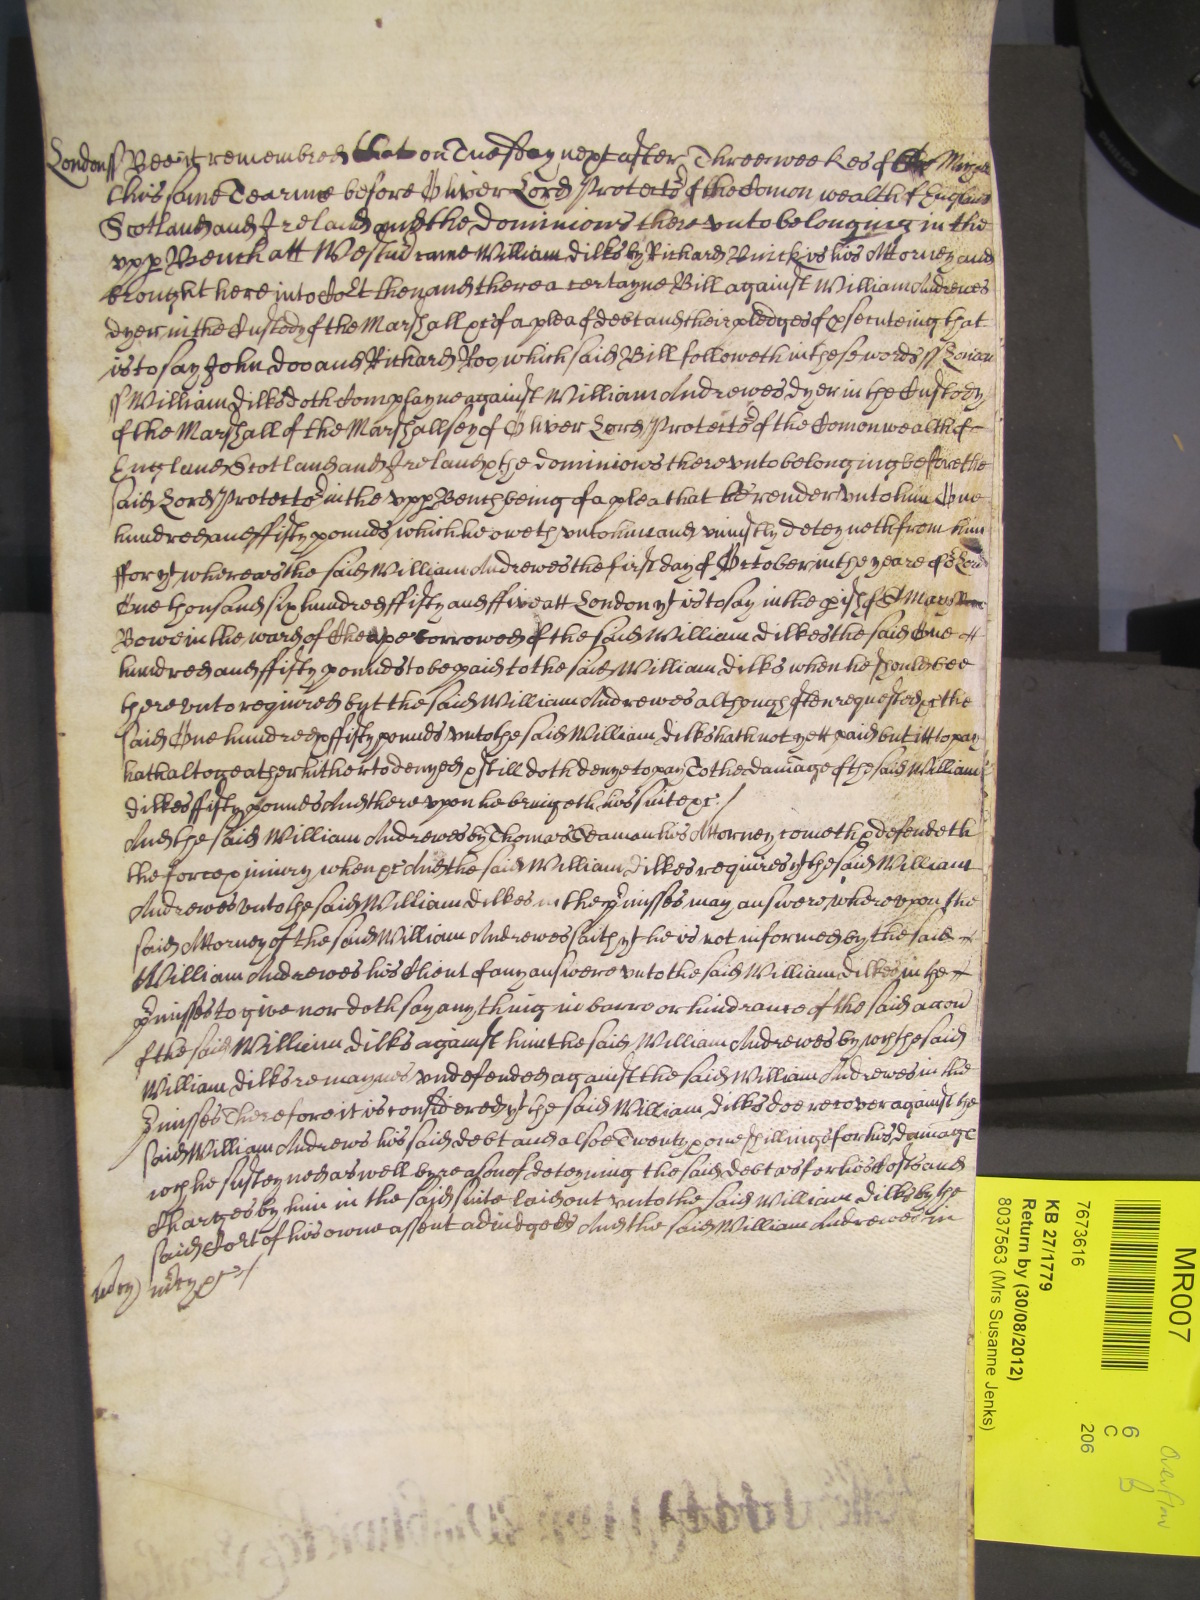 London ss Bee it remembred that on Tuesday next after Three weekes of St Michaell
this same Tearme before Oliver Lord Protector of the Comon wealth of England
Scotland and Ireland and the dominions there unto belonging in the
upp Bench att Westmr came William Dilks by Richard his Attorney and
brought here into Cort then and there a certayne Bill against William Andrewes
dyer in the Custody of the Marshall &c of a plea of debt and their pledges of psecuteing that
is to say John Doo and Richard Roo which said Bill followeth in these words ss London
ss William Dilks doth Complayne against William Andrewes dyer in the Custody
of the Marshall of the Marshallsey of Oliver Lord Protector of the Comonwealth of
England Scotland and Ireland & the dominions there unto belonging before the
said Lord Protector in the upp Bench being of a plea that he render unto him One
hundred and ffifty pounds which he oweth unto him and uniustly deteyneth from him
ffor yt whereas the said William Andrewes the first day of October in the yeare of or Lord
One thousand six hundred ffifty and ffive att London yt is to say in the pish of St Mary
Bowe in the ward of Cheape borrowed of the said William Dilkes the said One
hundred and ffifty pounds to be paid to the said William Dilks when he should bee
there unto required byt the said William Andrewes although often requested &c the
said One hundred & ffifty pounds unto the said William Dilks hath not yett paid but itt to pay
hath altogeather hitherto denyed & still doth denye to pay To the damage of the said William
Dilkes ffifty pounes And there upon he bringeth his suite &c /
And the said William Andrewes by Thomas Seaman his Attorney cometh & defendeth
the force & iniury when &c And the said William Dilkes requires yt the said William
Andrewes unto the said William Dilkes in the pmisses may answere where upon the
said Attorney of the said William Andrewes saith yt he is not informed by the said
William Andrewes his Client of any answere unto the said William Dilkes in the
pmisses to give nor doth say any thing in barre or hindrance of the said accon
of the said William Dilks against him the said William Andrewes by wch the said
William Dilks remaynes undefended against the said William Andrewes in the
pmisses Therefore it is considered yt the said William Dilks doe recover against the
said William Andrews his said debt and alsoe Twenty & one shillings for his damage
wch he susteyned as well by reason of deteyning the said debt as for his Costs and
Charges by him in the said suite laid out unto the said William Dilks by the
said Cort of his owne assent adiudged And the said William Andrewes in
mcy mcy &c /
MR007
7673616
KB 27/1779
Return by (30/08/2012)
8037563 (Mrs Susanne Jenks)
6
C
206
Overflow
B